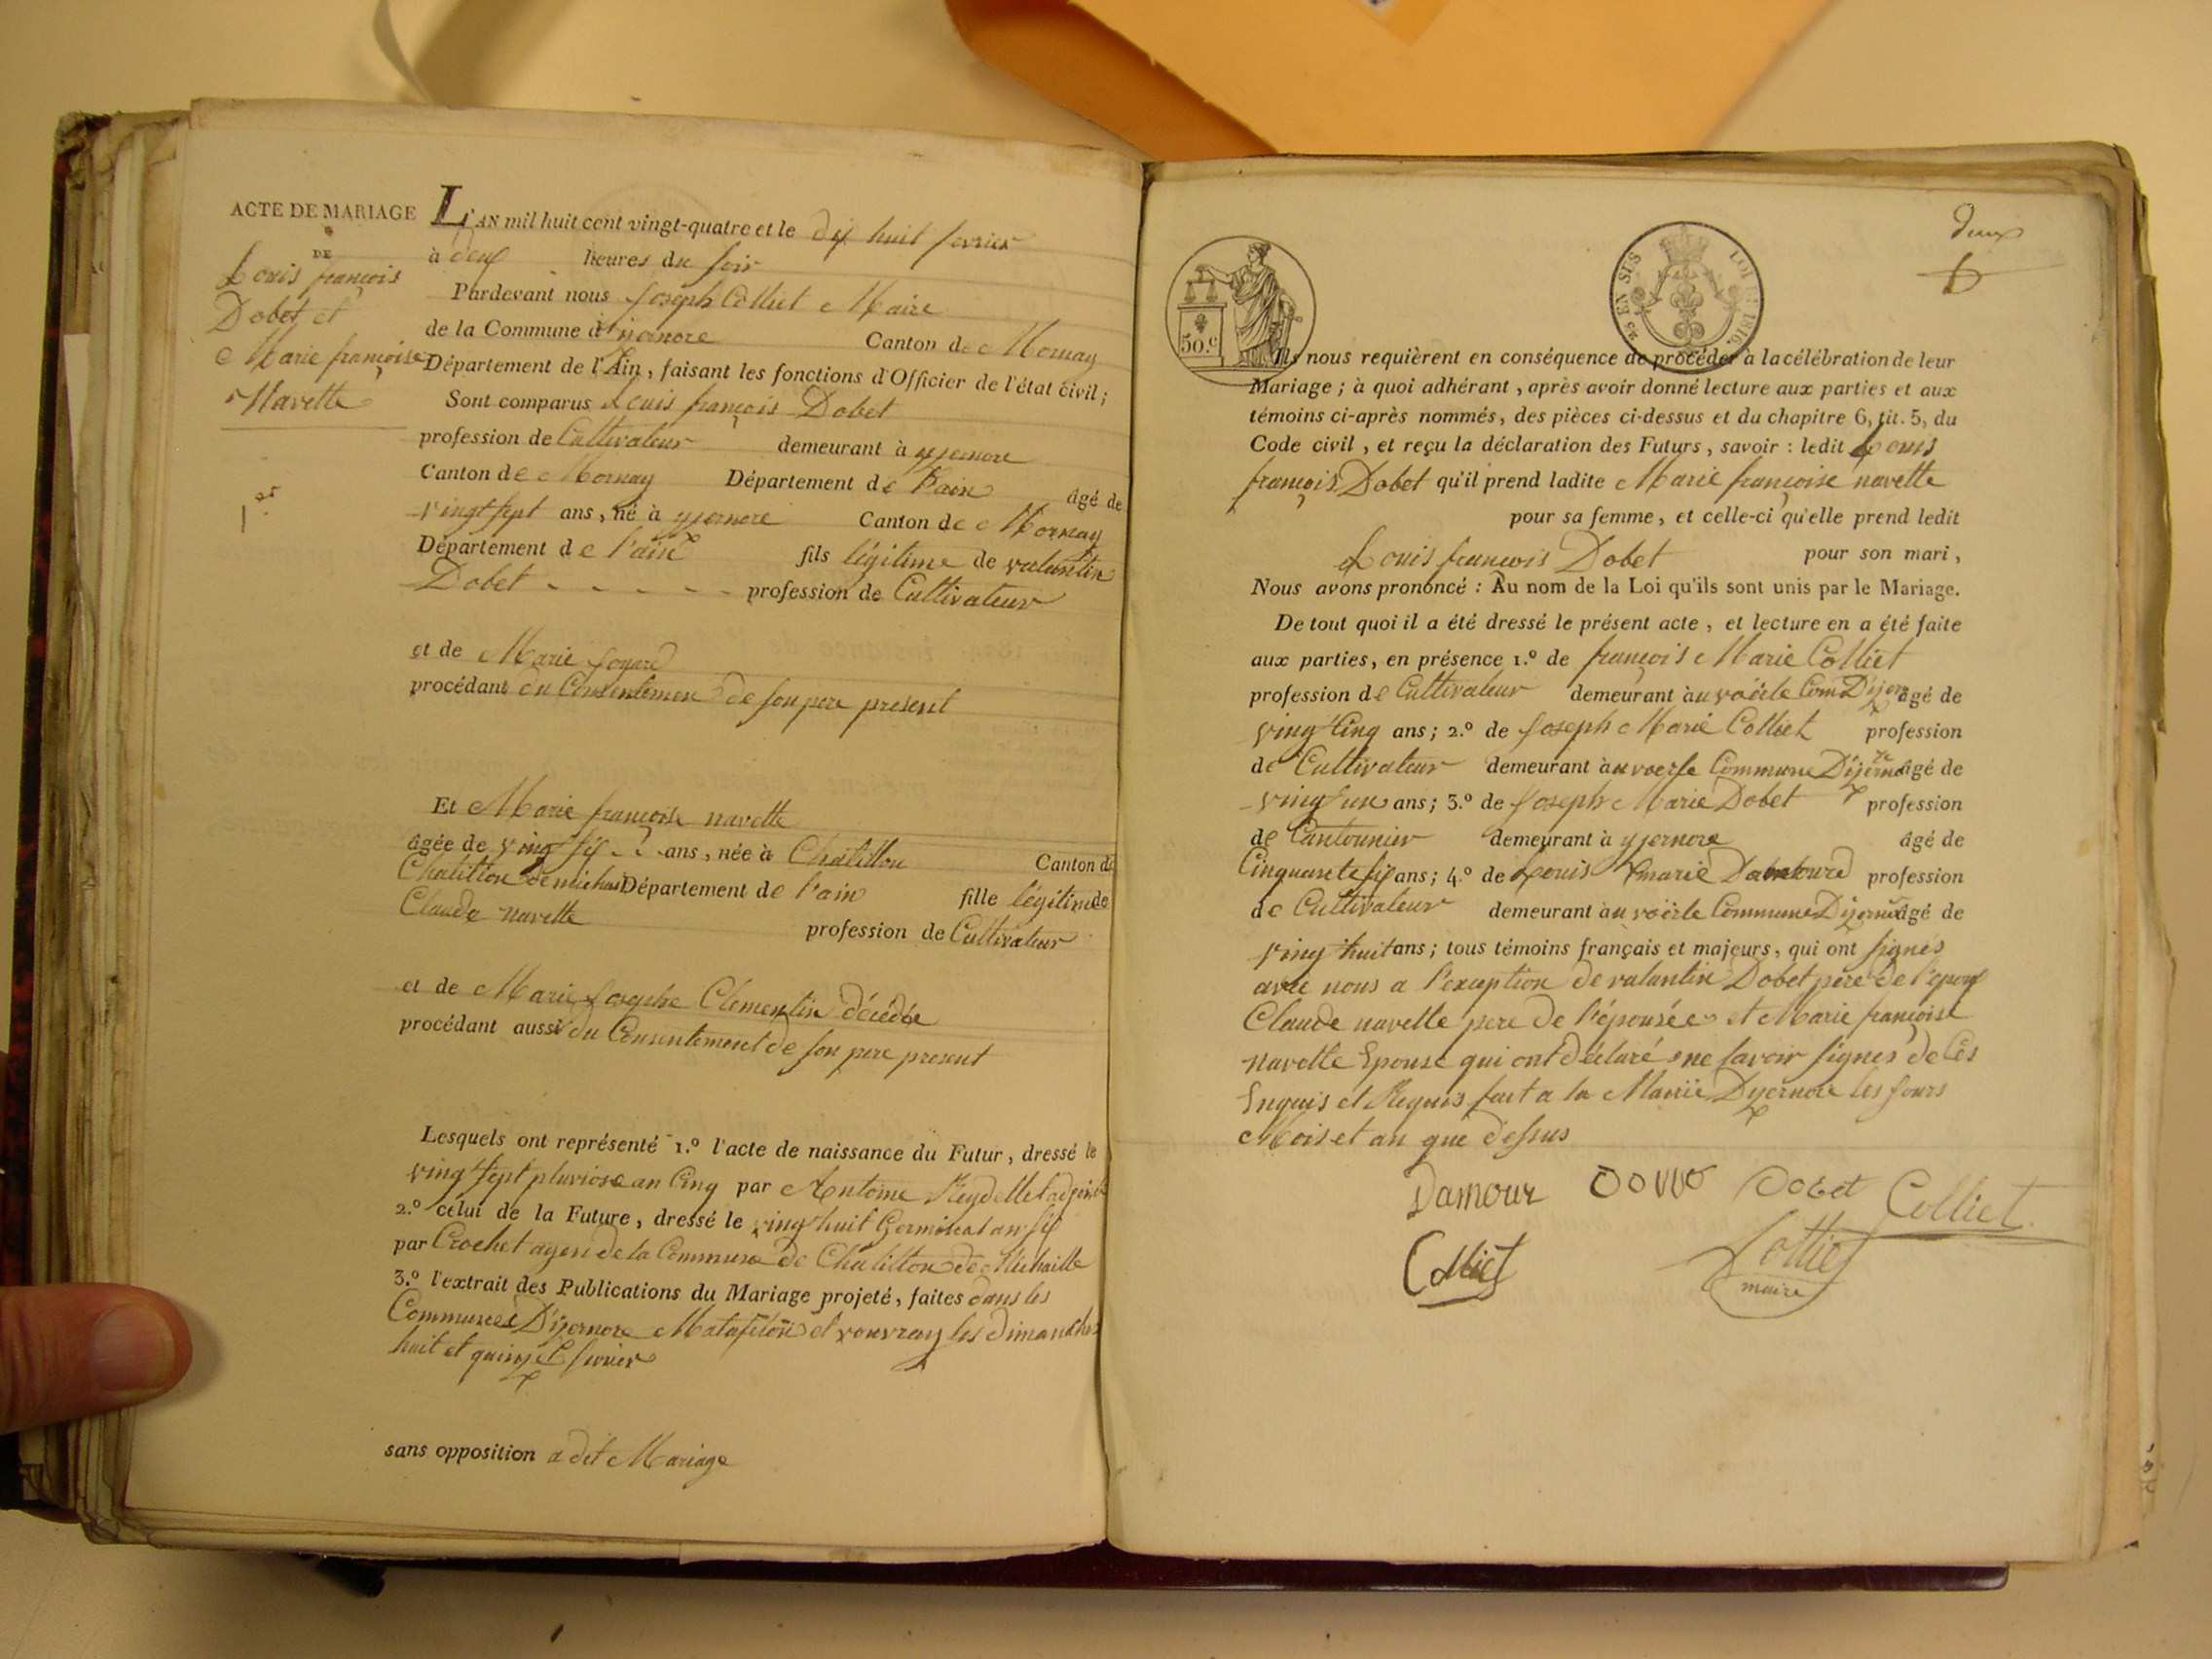 ACTE DE MARIAGE
DE
Louis françois
Dobet et
Marie françoise
Navette
1er
L'AN mil huit cent vingt-quatre et le dix huit fevrier
à deux heures du soir
Pardevant nous Joseph Colliet Maire
de la Commune d'izernore Canton de Mornay
Département de l'Ain, faisant les fonctions d'Officier de l'état civil;
Sont comparus Louis françois Dobet
profession de Cultivateur demeurant à yzernore
Canton de Mornay Département de l'ain âgé de
vingt sept ans, né à yzernore Canton de Mornay
Département de l'ain fils légitime de valantin
Dobet - - - - - profession de Cultivateur
et de Marie
procédant du Consentemen de son pere present
Et Marie françoise navette
âgée de ving six - - ans, née à Chatillon Canton de
Chatillon de michail Département de l'ain fille légitime de
Claude navette profession de Cultivateur
et de Marie Josephe Clementin décédée
procédant aussi du Consentement de son pere present
Lesquels ont représenté 1.º l'acte de naissance du Futur, dressé le
ving sept pluviose an Cinq par Antoine Reydellet adjoint
2.º celui de la Future, dressé le ving huit Germinal an six
par Crochet agen de la Commune de Chatillon de Michaille
3.º l'extrait des Publications du Mariage projeté, faites dans les
Communes D'izernore Matafelon et vouvray les Dimanches
huit et quinze fevrier
sans opposition a dit Mariage
deux
50.c
25 EN SUS LOI DE 1816.
Ils nous requièrent en conséquence de procéder à la célébration de leur
Mariage; à quoi adhérant, après avoir donné lecture aux parties et aux
témoins ci-après nommés, des pièces ci-dessus et du chapitre 6, tit. 5, du
Code civil, et reçu la déclaration des Futurs, savoir: ledit Louis
françois Dobet qu'il prend ladite Marie françoise navette
pour sa femme, et celle-ci qu'elle prend ledit
Louis francois Dobet pour son mari,
Nous avons prononcé: Au nom de la Loi qu'ils sont unis par le Mariage.
De tout quoi il a été dressé le présent acte, et lecture en a été faite
aux parties, en présence 1.º de françois Marie Colliet
profession de Cultivateur demeurant à au voërle Com D'izer âgé de
ving Cinq ans; 2.º de Joseph Marie Colliet profession
de Cultivateur demeurant à au voerle Commune D'izernore âgé de
ving un ans; 3.º de Joseph Marie Dobet profession
de Cantounier demeurant à yzernore âgé de
Cinquante six ans; 4.º de Louis marie Damour profession
de Cultivateur demeurant à au voërle Commune D'izernore âgé de
ving huit ans; tous témoins français et majeurs, qui ont signés
avec nous a l'exception de valantin Dobet pere de l'epoux
Claude navette pere de l'épousée et Marie francoise
navette Epouse qui ont déclaré ne savoir signer de Ces
Enquis et Requis fait a la Mairie Dyzernore les Jours
Mois et an que dessus
Damour Dobet Colliet
Colliet Colliet
maire